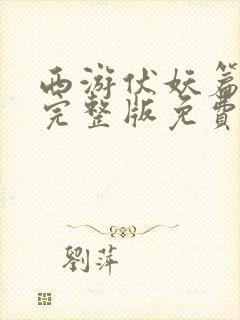 西游伏妖篇
完整版免費
劉萍